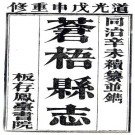 道光戊申重修
同治辛未續纂並鐫
蒼梧縣志
板存鳳臺書院